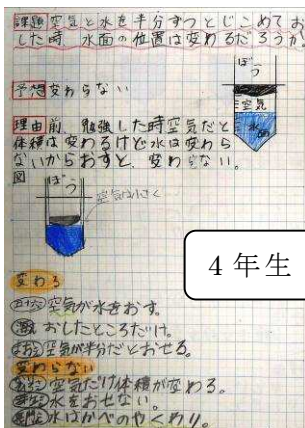 課題 空気と水を半分ずつとじこめてお
した時、水面の位置は変わるだろうか。
ぼう
空気
水
予想 変わらない
理由 前、勉強した時空気だと
体積は変わるけど水は変わら
ないからおすと、変わらない。
図
ぼう
空気 小さく
4年生
変わる
空気が水をおす。
おしたところだけ。
空気が半分だとおせる。
変わらない
空気だけ体積が変わる。
水をおせない。
水はかべのやくわり。